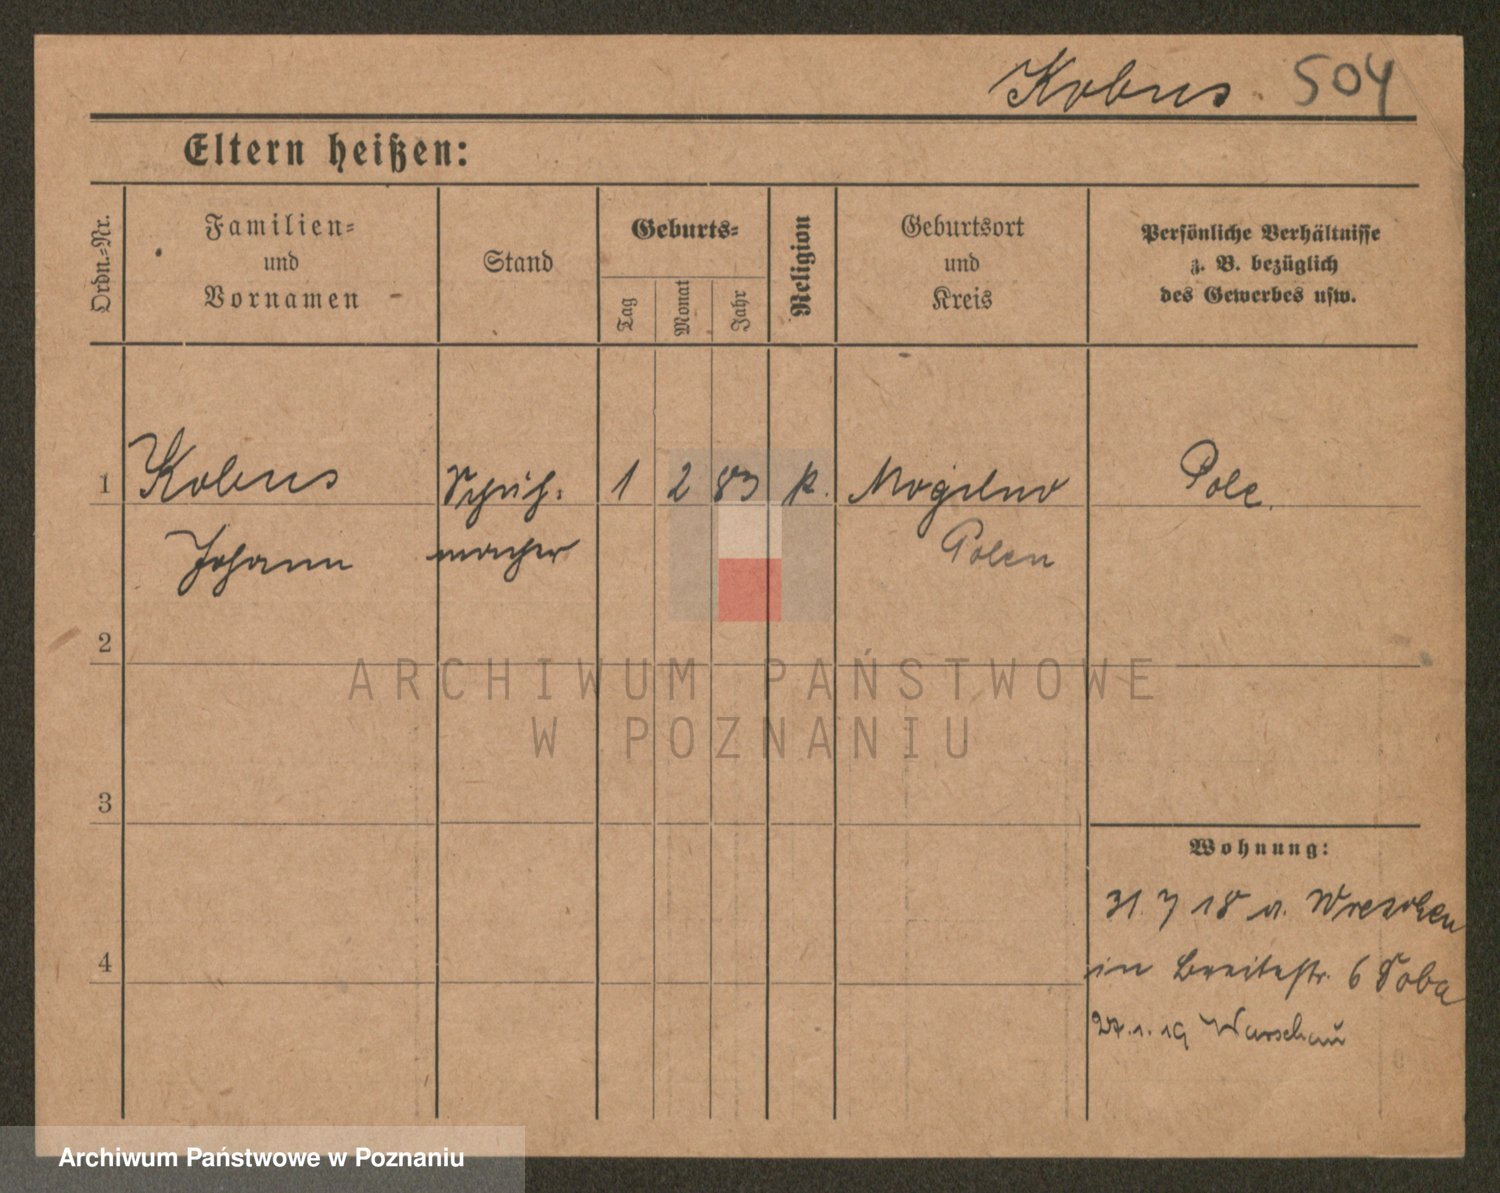 Kobus. 504
Eltern heißen:
Ordn.-Nr.
Familien-
und
Vornamen
Stand
Geburts-
Tag
Monat
Jahr
Religion
Geburtsort
und
Kreis
Persönliche Verhältnisse
z. B. bezüglich
des Gewerbes usw.
1 Kobus Schuh- 1 2 83 k. Mogilno Pole.
Johann macher Polen
2
ARCHIWUM PAŃSTWOWE
W POZNANIU
3
Wohnung:
31. 7 18 a. Wreschen
4
in Breitestr. 6 Soba
27. 1. 19 Warschau
Archiwum Państwowe w Poznaniu